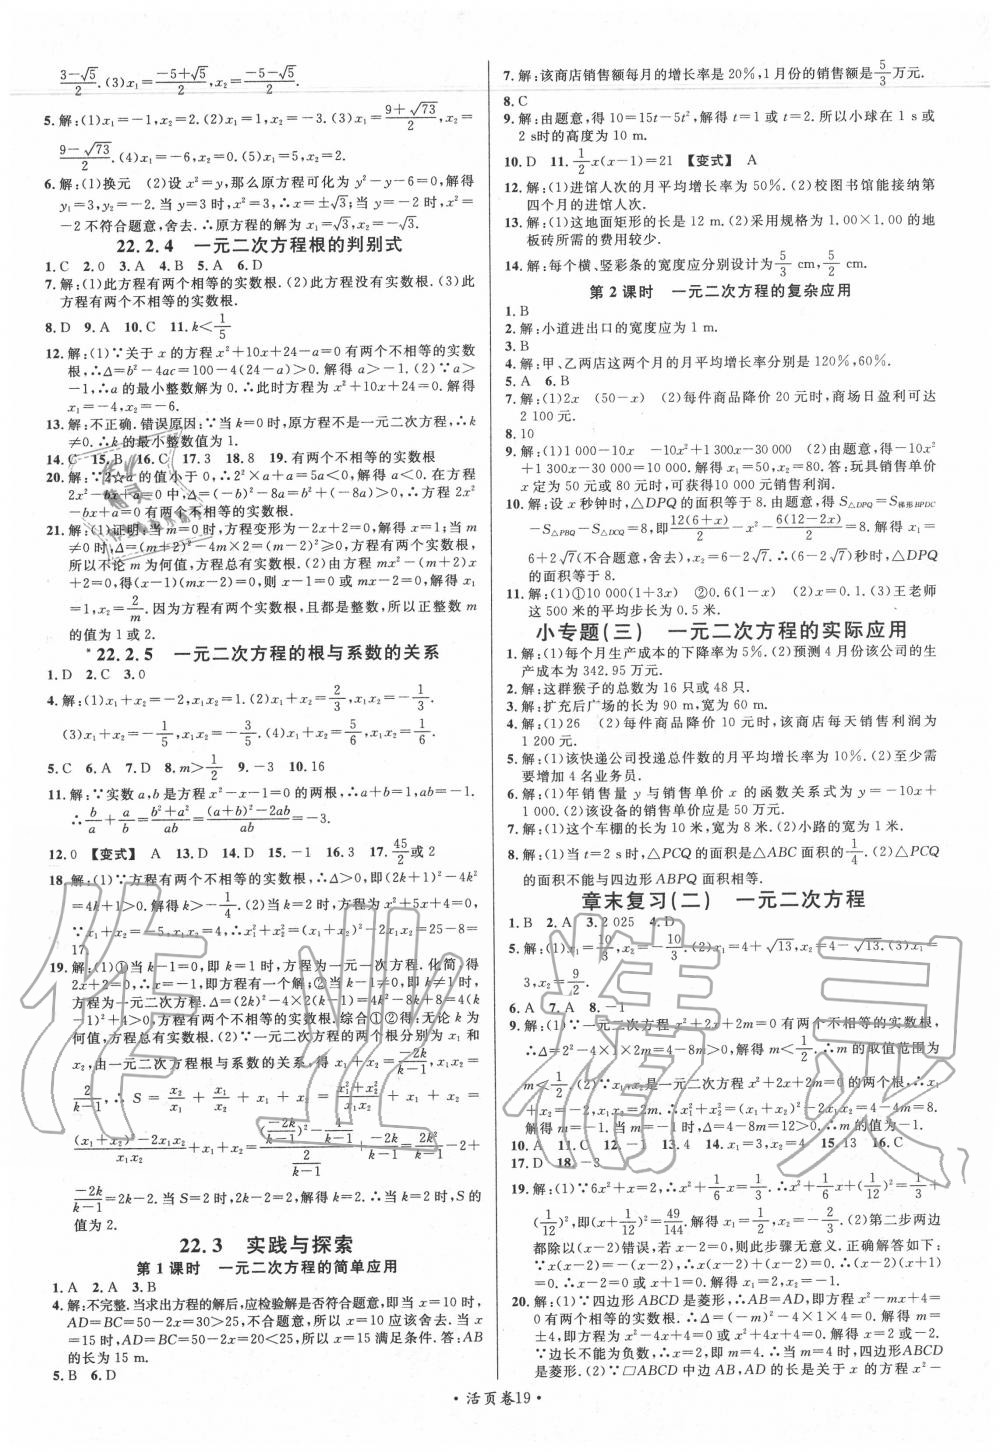 3－√5/2.(3)x₁=－5＋√5/2,x₂=－5－√5/2.
5.解:(1)x₁=－1,x₂=2.(2)x₁=1,x₂=－3.(3)x₁=9＋√73/2,x₂=
9－√73/2.(4)x₁=－6,x₂=0.(5)x₁=5,x₂=2.
6.解:(1)换元 (2)设 x²=y,那么原方程可化为 y²－y－6=0,解得
y₁=3,y₂=－2.当 y=3 时,x²=3,∴x=±√3;当 y=－2 时,x²=
－2 不符合题意,舍去.∴原方程的解为 x₁=√3,x₂=－√3.
22.2.4 一元二次方程根的判别式
1.C 2.0 3.A 4.B 5.A 6.D
7.解:(1)此方程有两个相等的实数根.(2)此方程没有实数根.(3)此
方程有两个不相等的实数根.
8.D 9.A 10.C 11.k<1/5
12.解:(1)∵关于 x 的方程 x²＋10x＋24－a=0 有两个不相等的实数
根,∴Δ=b²－4ac=100－4(24－a)>0.解得 a>－1.(2)∵a>
－1,∴a 的最小整数解为 0.∴此时方程为 x²＋10x＋24=0.解得
x₁=－4,x₂=－6.
13.解:不正确.错误原因:∵当 k=0 时,原方程不是一元二次方程,∴k
≠0.∴k 的最小整数值为 1.
14.C 15.B 16.C 17.3 18.8 19.有两个不相等的实数根
20.解:∵2☆a 的值小于 0,∴2²×a＋a=5a<0,解得 a<0.在方程
2x²－bx＋a=0 中,Δ=(－b)²－8a=b²－8a>0,∴方程 2x²
－bx＋a=0 有两个不相等的实数根.
21.解:(1)证明:当 m=0 时,方程变形为－2x＋2=0,解得 x=1;当 m
≠0 时,Δ=(m＋2)²－4m×2=(m－2)²≥0,方程有两个实数根,
所以不论 m 为何值,方程总有实数根.(2)由方程 mx²－(m＋2)x
＋2=0,得(x－1)(mx－2)=0,则 x－1=0 或 mx－2=0,解得 x₁
=1,x₂=2/m.因为方程有两个实数根,且都是整数,所以正整数 m
的值为 1 或 2.
*22.2.5 一元二次方程的根与系数的关系
1.D 2.C 3.0
4.解:(1)x₁＋x₂=－2,x₁x₂=1.(2)x₁＋x₂=2/3,x₁x₂=－1/3.
(3)x₁＋x₂=－1/5,x₁x₂=－3/5.(4)x₁＋x₂=5/6,x₁x₂=1/6.
5.C 6.A 7.D 8.m>1/2 9.－3 10.16
11.解:∵实数 a,b 是方程 x²－x－1=0 的两根,∴a＋b=1,ab=－1.
∴b/a＋a/b=b²＋a²/ab=(a＋b)²－2ab/ab=－3.
12.0 【变式】 A 13.D 14.D 15.－1 16.3 17.45/2或 2
18.解:(1)∵方程有两个不相等的实数根,∴Δ>0,即(2k＋1)²－4k²
=4k＋1>0,解得 k>－1/4.(2)当 k=2 时,方程为 x²＋5x＋4=
0,∵x₁＋x₂=－5,x₁x₂=4,∴x₁²＋x₂²=(x₁＋x₂)²－2x₁x₂=25－8=
17.
19.解:(1)①当 k－1=0,即 k=1 时,方程为一元一次方程.化简,得
2x＋2=0,即方程有一个解;②当 k－1≠0,即 k≠1 时,方程
为一元二次方程.Δ=(2k)²－4×2(k－1)=4k²－8k＋8=4(k
－1)²＋4>0,方程有两个不相等的实数根.综合①②得:无论 k 为
何值,方程总有实数根.(2)∵方程的两个根分别为 x₁ 和
x₂,由一元二次方程根与系数的关系,得 x₁＋x₂=－2k/k－1,x₁x₂=
2/k－1,∴S=x₂/x₁＋x₁/x₂＋x₁＋x₂=x₁²＋x₂²/x₁x₂＋x₁＋x₂=
(x₁＋x₂)²－2x₁x₂/x₁x₂＋x₁＋x₂=(－2k/k－1)²－4/k－1/2/k－1＋－2k/k－1=2k²/k－1－2＋
－2k/k－1=2k－2.当 S=2 时,2k－2=2,解得 k=2.∴当 k=2 时,S的
值为 2.
22.3 实践与探索
第 1 课时 一元二次方程的简单应用
1.A 2.A 3.B
4.解:不完整.当求出方程的解后,应检验解是否符合题意,即当 x=10 时,
AD=BC=50－2x=30>25,不合题意,所以 x=10 应舍去.当 x
=15 时,AD=BC=50－2x=20<25,所以 x=15 满足条件.答:AB
的长为 15 m.
5.B 6.D
7.解:该商店销售额每月的增长率是 20%,1 月份的销售额是5/3万元.
8.C
9.解:由题意,得 10=15t－5t²,解得 t=1 或 t=2.所以小球在 1 s或
2 s时的高度为 10 m.
10.D 11.1/2x(x－1)=21 【变式】 A
12.解:(1)进馆人次的月平均增长率为 50%.(2)校图书馆能接纳第
四个月的进馆人次.
13.解:(1)这地面矩形的长是 12 m.(2)采用规格为 1.00×1.00 的地
板砖所需的费用较少.
14.解:每个横、竖彩条的宽度应分别设计为5/3 cm,5/2 cm.
第 2 课时 一元二次方程的复杂应用
1.B
2.解:小道进出口的宽度应为 1 m.
3.B
4.解:甲、乙两店这两个月的月平均增长率分别是 120%,60%.
5.A 6.B
7.解:(1)2x (50－x) (2)每件商品降价 20 元时,商场日盈利可达
2 100 元.
8.10
9.解:(1)1 000－10x －10x²＋1 300x－30 000 (2)由题意,得－10x²
＋1 300x－30 000=10 000.解得 x₁=50,x₂=80.答:玩具销售单价
x 定为 50 元或 80 元时,可获得10 000 元销售利润.
10.解:设 x 秒钟时,△DPQ 的面积等于 8.由题意,得 S△DPQ=S梯形BPDC
－S△PBQ－S△DCQ=8,即12(6＋x)/2－x²－6(12－2x)/2=8.解得 x₁=
6＋2√7(不合题意,舍去),x₂=6－2√7.∴(6－2√7)秒时,△DPQ
的面积等于 8.
11.解:(1)①10 000(1＋3x) ②0.6(1－x) (2)x=0.1.(3)王老师
这 500 米的平均步长为 0.5 米.
小专题(三) 一元二次方程的实际应用
1.解:(1)每个月生产成本的下降率为 5%.(2)预测 4 月份该公司的生
产成本为 342.95 万元.
2.解:这群猴子的总数为 16 只或 48 只.
3.解:扩充后广场的长为 90 m,宽为 60 m.
4.解:(1)26 (2)每件商品降价 10 元时,该商店每天销售利润为
1 200 元.
5.解:(1)该快递公司投递总件数的月平均增长率为 10%.(2)至少需
要增加 4 名业务员.
6.解:(1)年销售量 y 与销售单价 x 的函数关系式为 y=－10x＋
1 000.(2)该设备的销售单价应是 50 万元.
7.解:(1)这个车棚的长为 10 米,宽为 8 米.(2)小路的宽为 1 米.
8.解:(1)当 t=2 s 时,△PCQ 的面积是△ABC 面积的1/4.(2)△PCQ
的面积不能与四边形 ABPQ 面积相等.
章末复习(二) 一元二次方程
1.B 2.A 3.2 025 4.D
5.解:(1)x₁=10/3,x₂=－10/3.(2)x₁=4＋√13,x₂=4－√13.(3)x₁=
3,x₂=9/2.
6.A 7.A 8.－1
9.解:(1)∵一元二次方程 x²＋2x＋2m=0 有两个不相等的实数根,
∴Δ=2²－4×1×2m=4－8m>0,解得 m<1/2.∴m 的取值范围为
m<1/2.(2)∵x₁,x₂是一元二次方程 x²＋2x＋2m=0 的两个根,∴x₁
＋x₂=－2,x₁x₂=2m.∴x₁²＋x₂²=(x₁＋x₂)²－2x₁x₂=4－4m=8.
解得 m=－1.当 m=－1 时,Δ=4－8m=12>0,∴m 的值为－1.
10.A 11.C 12.－1 13.4 14.x₁=3,x₂=4 15.13 16.C
17.D 18.－3
19.解:(1)∵6x²＋x=2,∴x²＋1/6x=1/3.∴x²＋1/6x＋(1/12)²=1/3＋
(1/12)²,即(x＋1/12)²=49/144.解得 x₁=1/2,x₂=－2/3.(2)第二步两边
都除以(x－2)错误,若 x－2=0,则此步骤无意义.正确解法如下:
∵x(x－2)=－(x－2),∴x(x－2)＋(x－2)=0.∴(x－2)(x＋1)
=0.∴x－2=0 或 x＋1=0.解得 x₁=2,x₂=－1.
20.解:(1)∵四边形 ABCD 是菱形,∴AB=AD,即方程 x²－mx＋4=
0 有两个相等的实数根.∴Δ=(－m)²－4×1×4=0.解得 m=
±4,即方程为 x²－4x＋4=0 或 x²＋4x＋4=0.解得 x=2 或－2.
∵边长不能为负数,∴x=2,即 m=4.故当 m 为 4 时,四边形ABCD
是菱形.(2)∵▱ABCD 中边 AB,AD 的长是关于 x 的方程 x²－
·活页卷19·
作业精灵